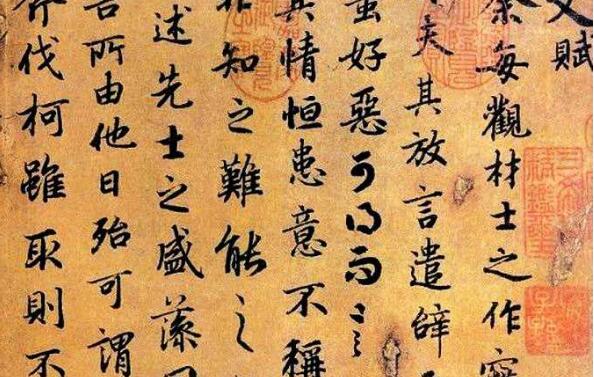 文賦
余每觀材士之作
夫其放言遣辭
蚩好惡可得而言
其情恒患意不稱
非知之難能之
述先士之盛藻
所由他日殆可謂
斧伐柯雖取則不